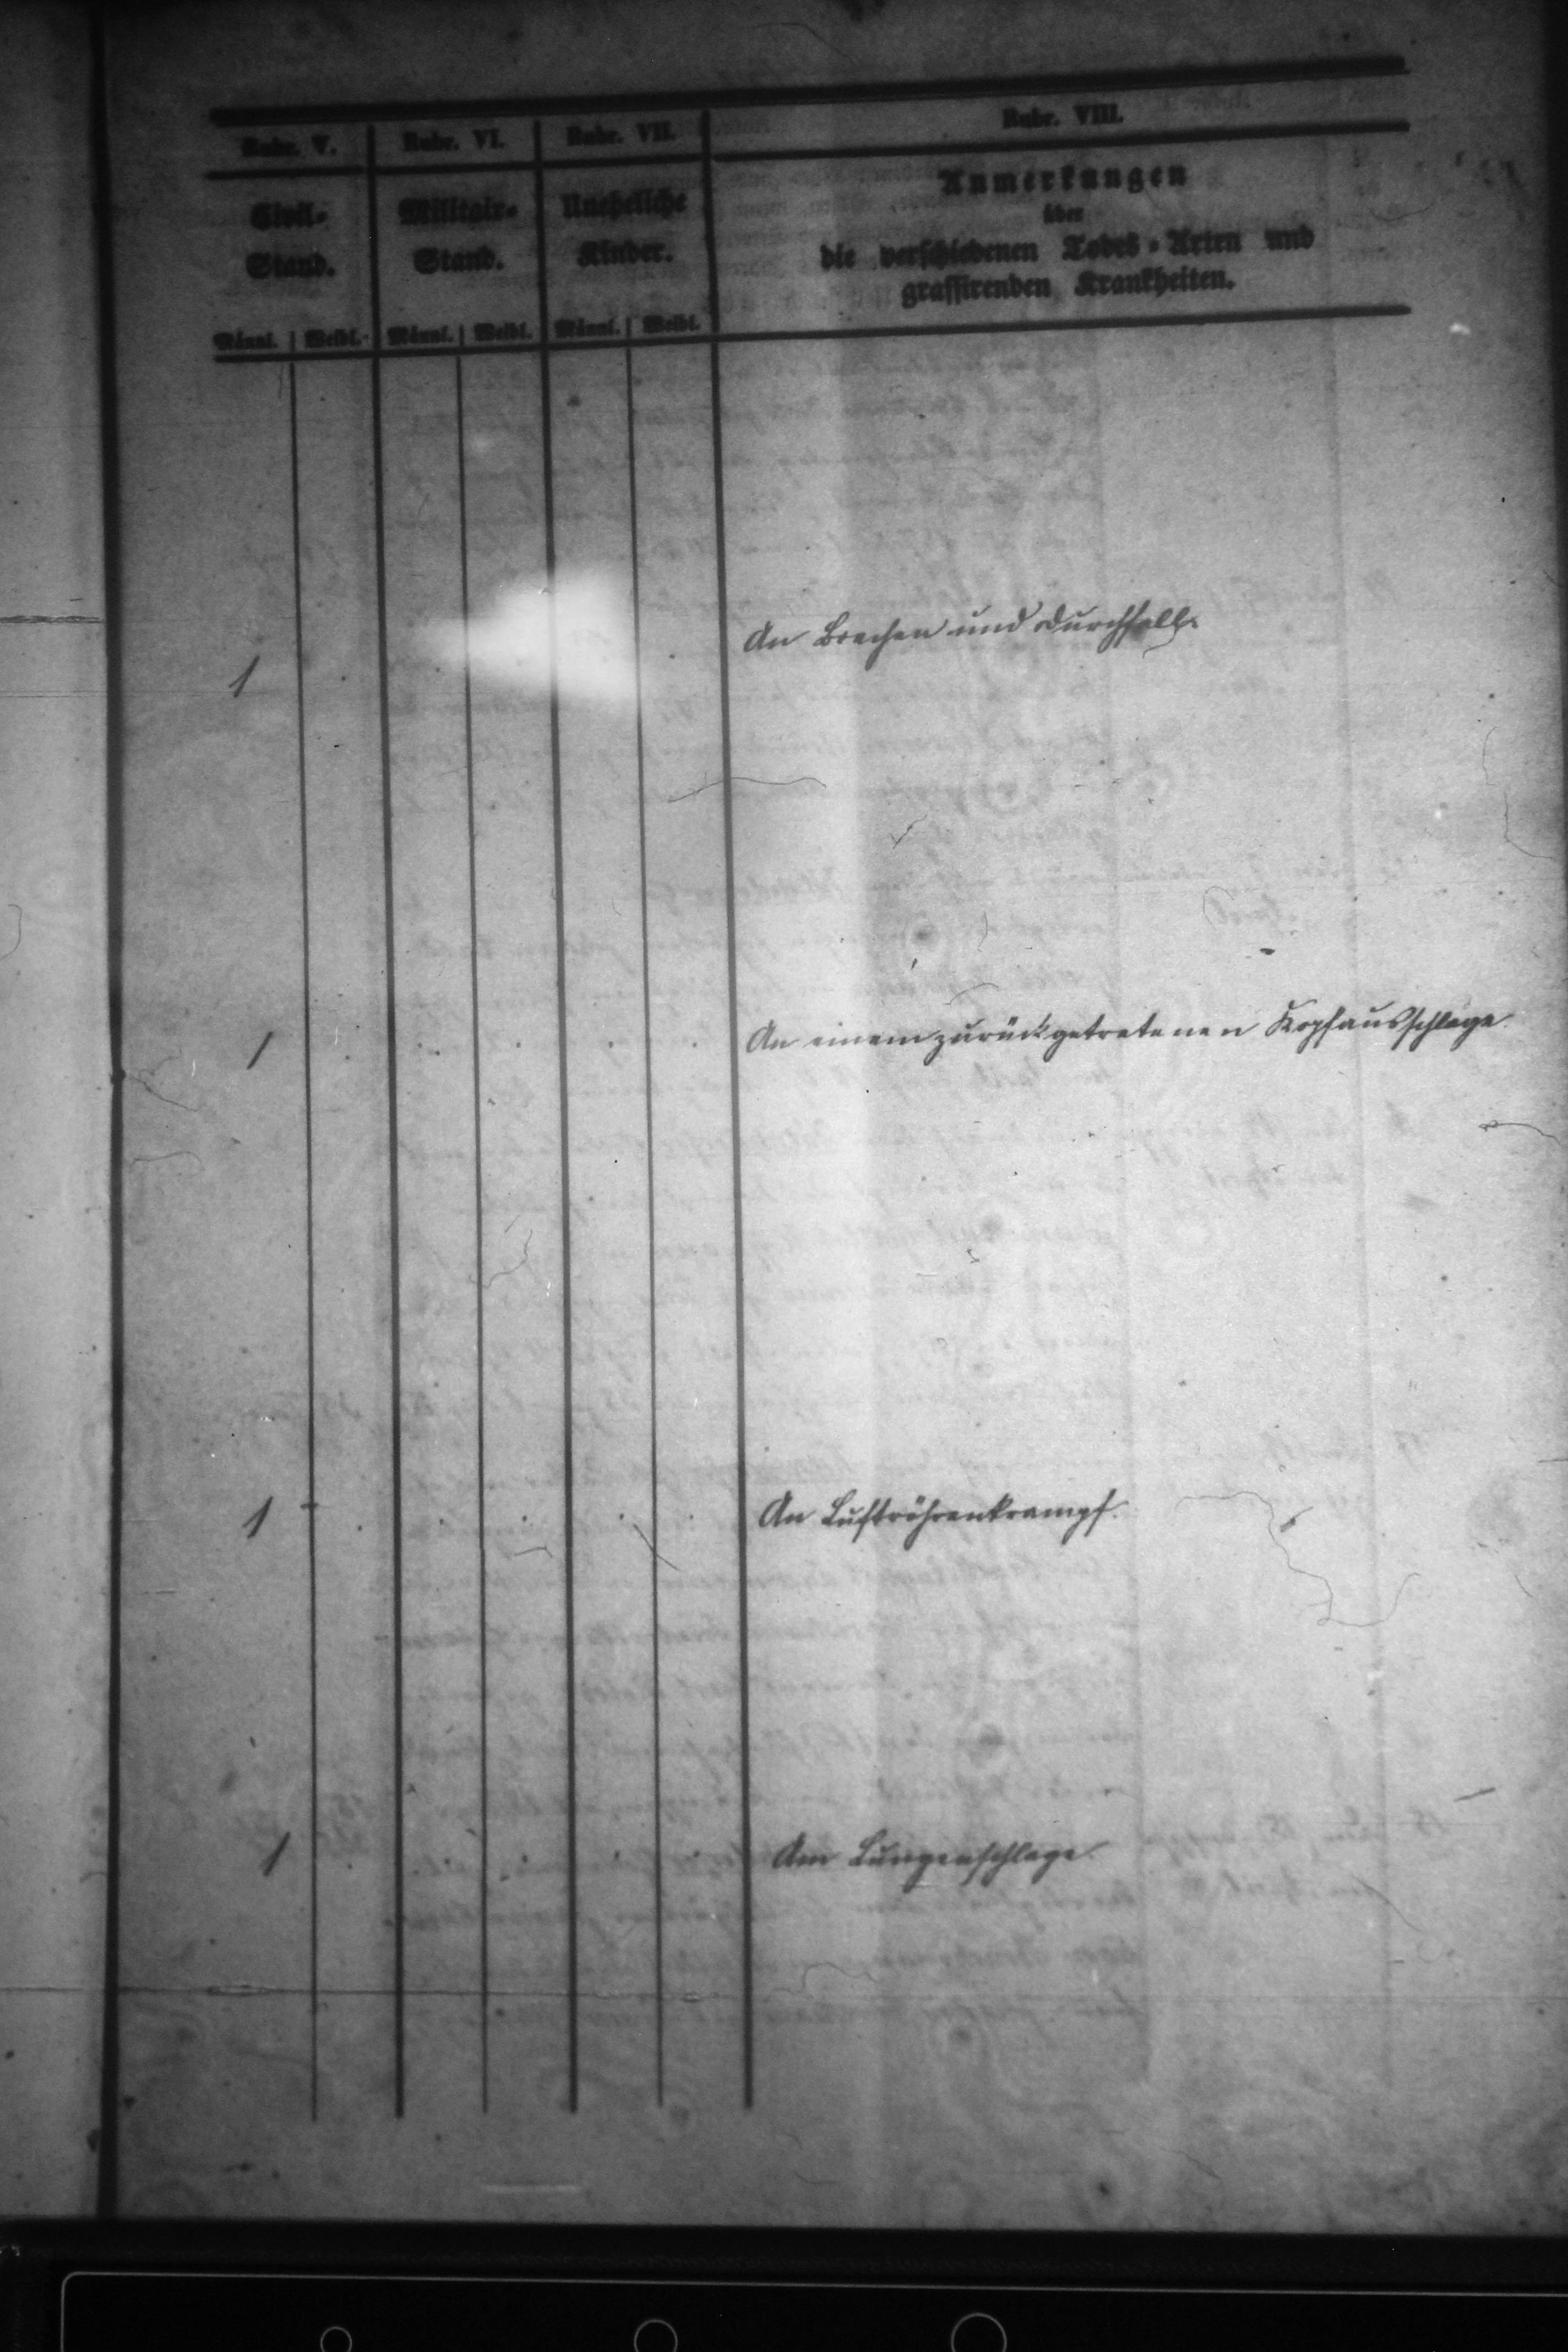 Rubr. V. Rubr. VI. Rubr. VII. Rubr. VIII.
Civil- Stand. Militair- Stand. Uneheliche Kinder.
Anmerkungen
über
die verschiedenen Todes-Arten und
grassirenden Krankheiten.
Männl. Weibl. Männl. Weibl. Männl. Weibl.
1 An Brechen und Durchfall.
1 An einem zurückgetretenen Kopfausschlage.
1 An Luftröhrenkrampf.
1 Am Lungenschlage.